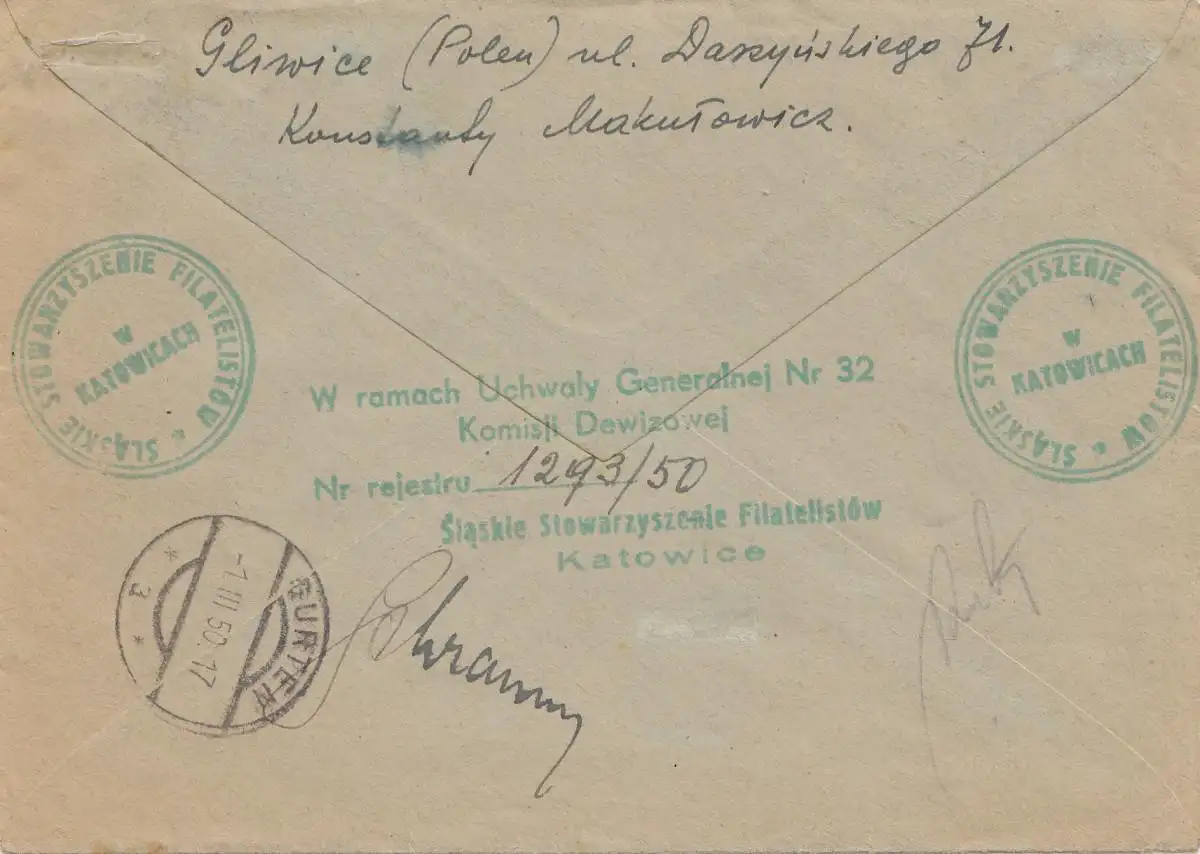 Gliwice (Polen) ul. Daszyńskiego 71.
Konstanty Makułowicz.
ŚLĄSKIE STOWARZYSZENIE FILATELISTÓW
W
KATOWICACH
ŚLĄSKIE STOWARZYSZENIE FILATELISTÓW
W
KATOWICACH
W ramach Uchwały Generalnej Nr 32
Komisji Dewizowej
Nr rejestru 1293/50
Śląskie Stowarzyszenie Filatelistów
Katowice
-1.III.50.17
* 3 *
Schramm